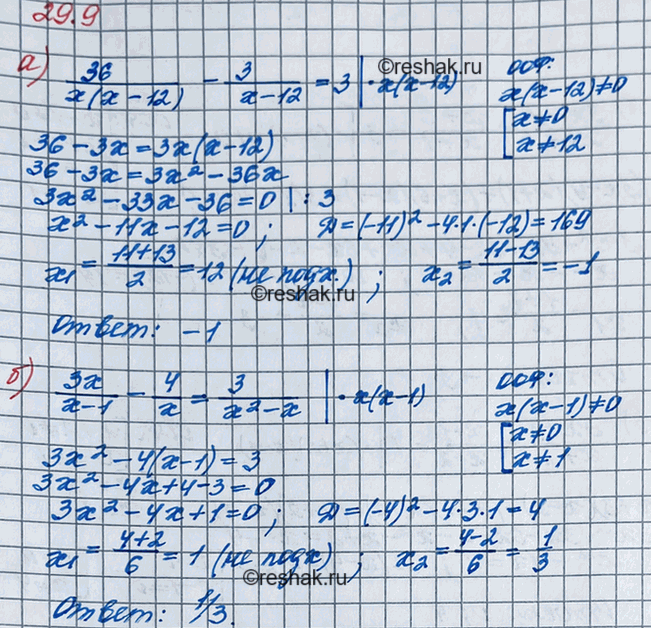 29.9
а) 36/(x(x-12)) - 3/(x-12) = 3 | · x(x-12) ООФ:
©reshak.ru
x(x-12)≠0
[x≠0
x≠12
36-3x=3x(x-12)
36-3x=3x²-36x
3x²-33x-36=0 |:3
x²-11x-12=0; D=(-11)²-4·1·(-12)=169
x₁=(11+13)/2=12 (не подх.); x₂=(11-13)/2=-1
©reshak.ru
Ответ: -1
б) 3x/(x-1) - 4/x = 3/(x²-x) | · x(x-1) ООФ:
x(x-1)≠0
[x≠0
x≠1
3x²-4(x-1)=3
3x²-4x+4-3=0
3x²-4x+1=0; D=(-4)²-4·3·1=4
x₁=(4+2)/6=1 (не подх); x₂=(4-2)/6=1/3
©reshak.ru
Ответ: 1/3.